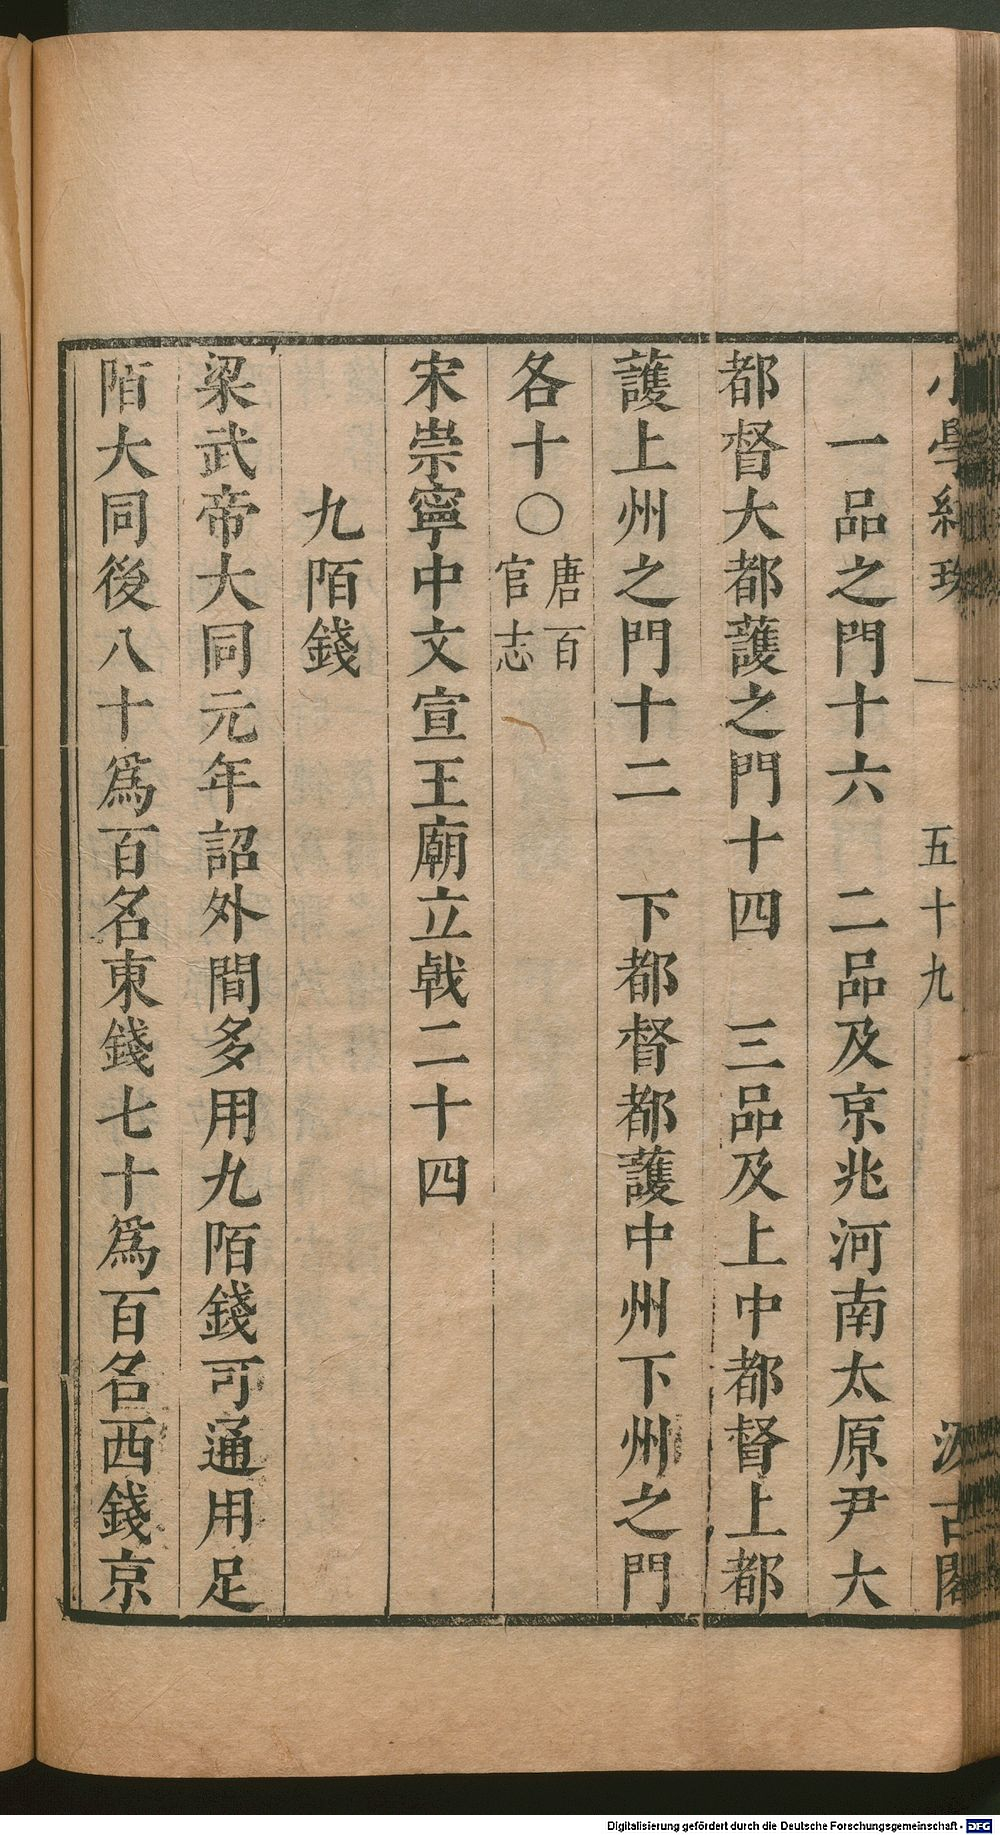 小學紺珠 一 五十九 汲古閣
一品之門十六 二品及京兆河南太原尹大
都督大都護之門十四 三品及上中都督上都
護上州之門十二 下都督都護中州下州之門
各十○唐百官志
宋崇寧中文宣王廟立戟二十四
九陌錢
梁武帝大同元年詔外間多用九陌錢可通用足
陌大同後八十爲百名東錢七十爲百名西錢京
Digitalisierung gefördert durch die Deutsche Forschungsgemeinschaft - DFG